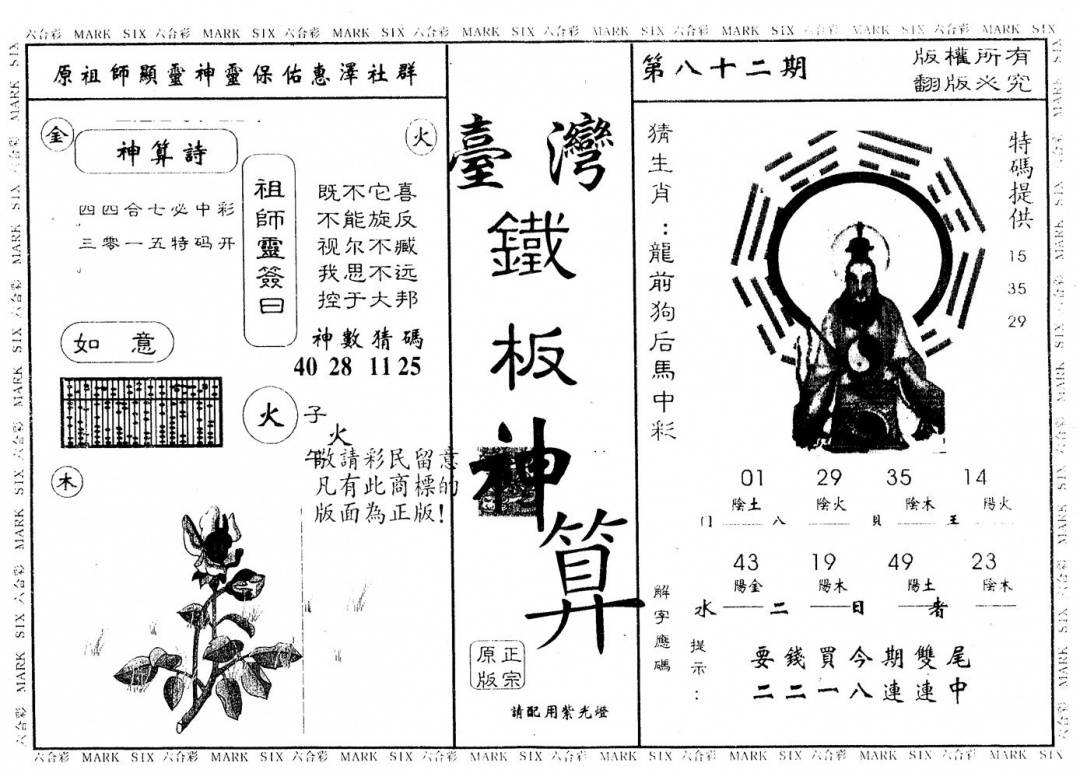 六合彩 MARK SIX 六合彩 MARK SIX 六合彩 MARK SIX 六合彩 MARK SIX 六合彩 MARK SIX 六合彩 MARK SIX 六合彩 MARK SIX 六合彩 MARK SIX
原祖師顯靈神靈保佑惠澤社群
金
火
神算詩
四四合七必中彩
三零一五特码开
祖師靈簽曰
既不它喜
不能旋反
视尔不臧
我思不远
控于大邦
神數猜碼
40 28 11 25
如 意
火
子
火
午
木
敬請彩民留意
凡有此商標的
版面為正版!
臺灣
鐵
板
神
算
正宗
原版
請配用紫光燈
第八十二期
版權所有
翻版必究
猜生肖:龍前狗后馬中彩
特碼提供
15
35
29
01 29 35 14
陰土 陰火 陰木 陽火
门 八 貝 王
43 19 49 23
陽金 陽木 陽土 陰木
水 二 日 者
解字應碼
提示:
要錢買今期雙尾
二二一八連連中
六合彩 MARK SIX 六合彩 MARK SIX 六合彩 MARK SIX 六合彩 MARK SIX 六合彩 MARK SIX 六合彩 MARK SIX 六合彩 MARK SIX 六合彩 MARK SIX